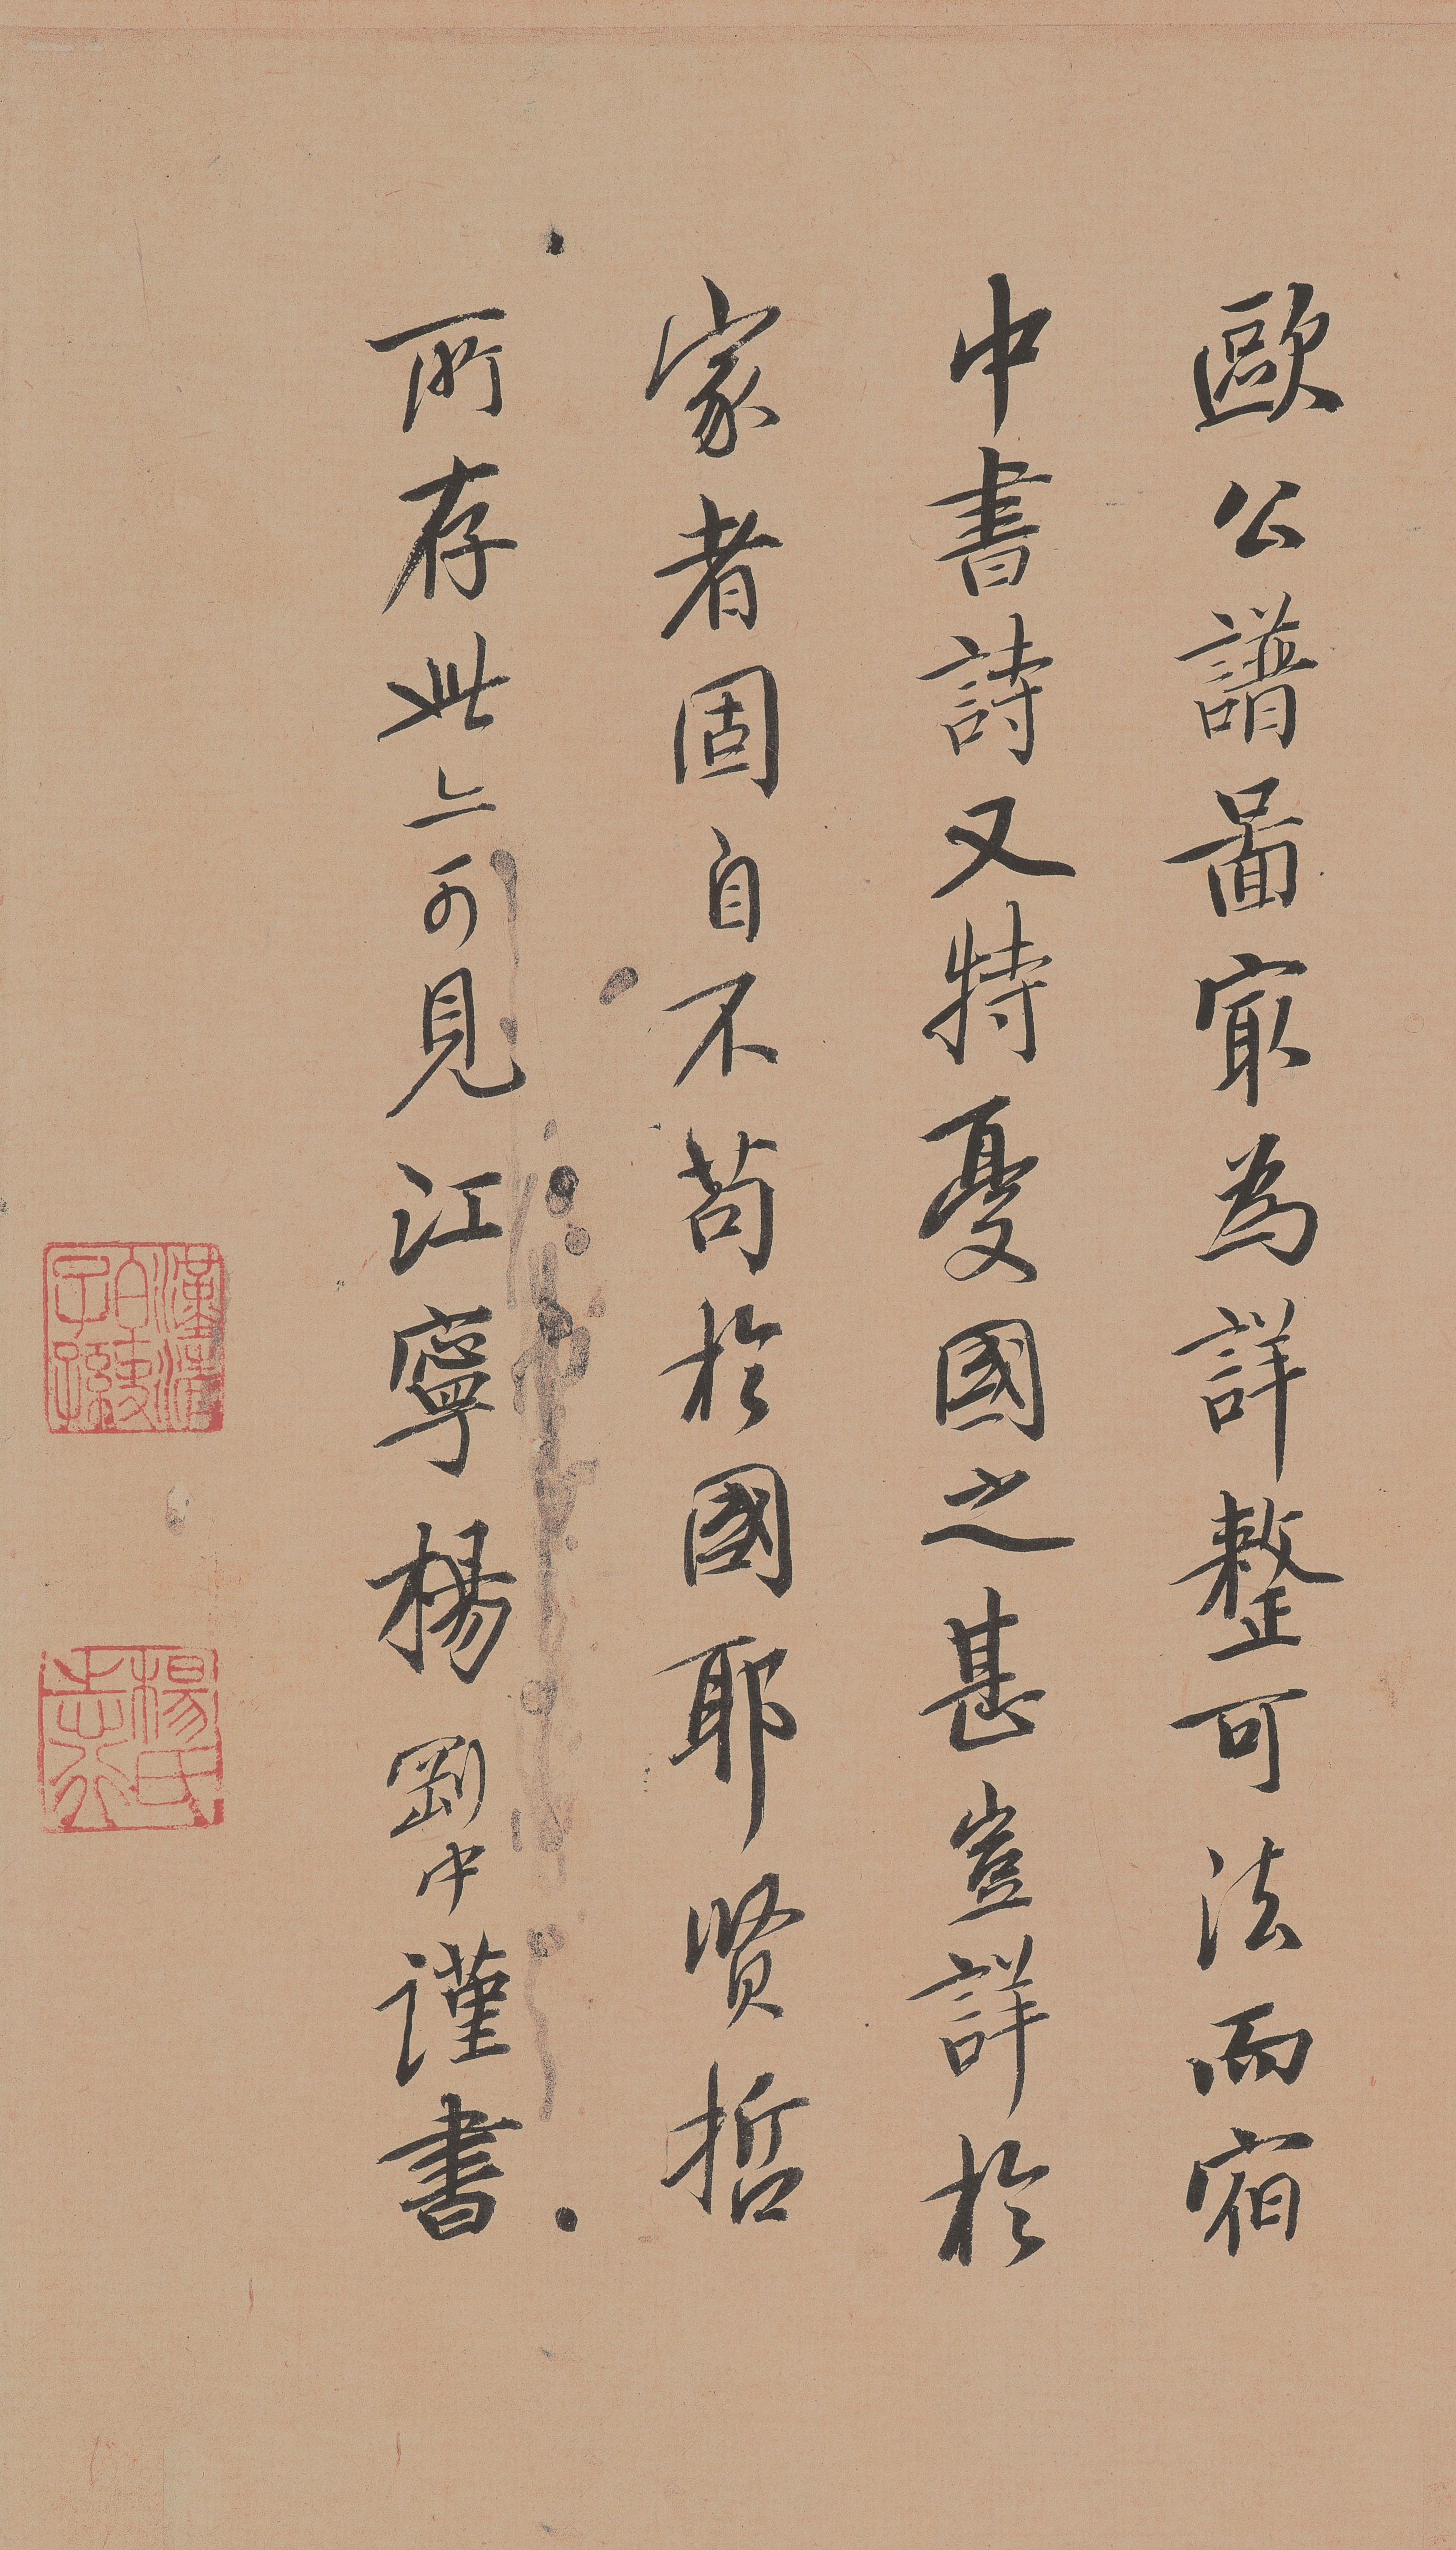 歐公譜圖㝡為詳整可法而宿
中書詩又特憂國之甚豈詳於
家者固自不苟於國耶賢哲
所存此亦可見江寧楊剛中謹書
楊氏志行